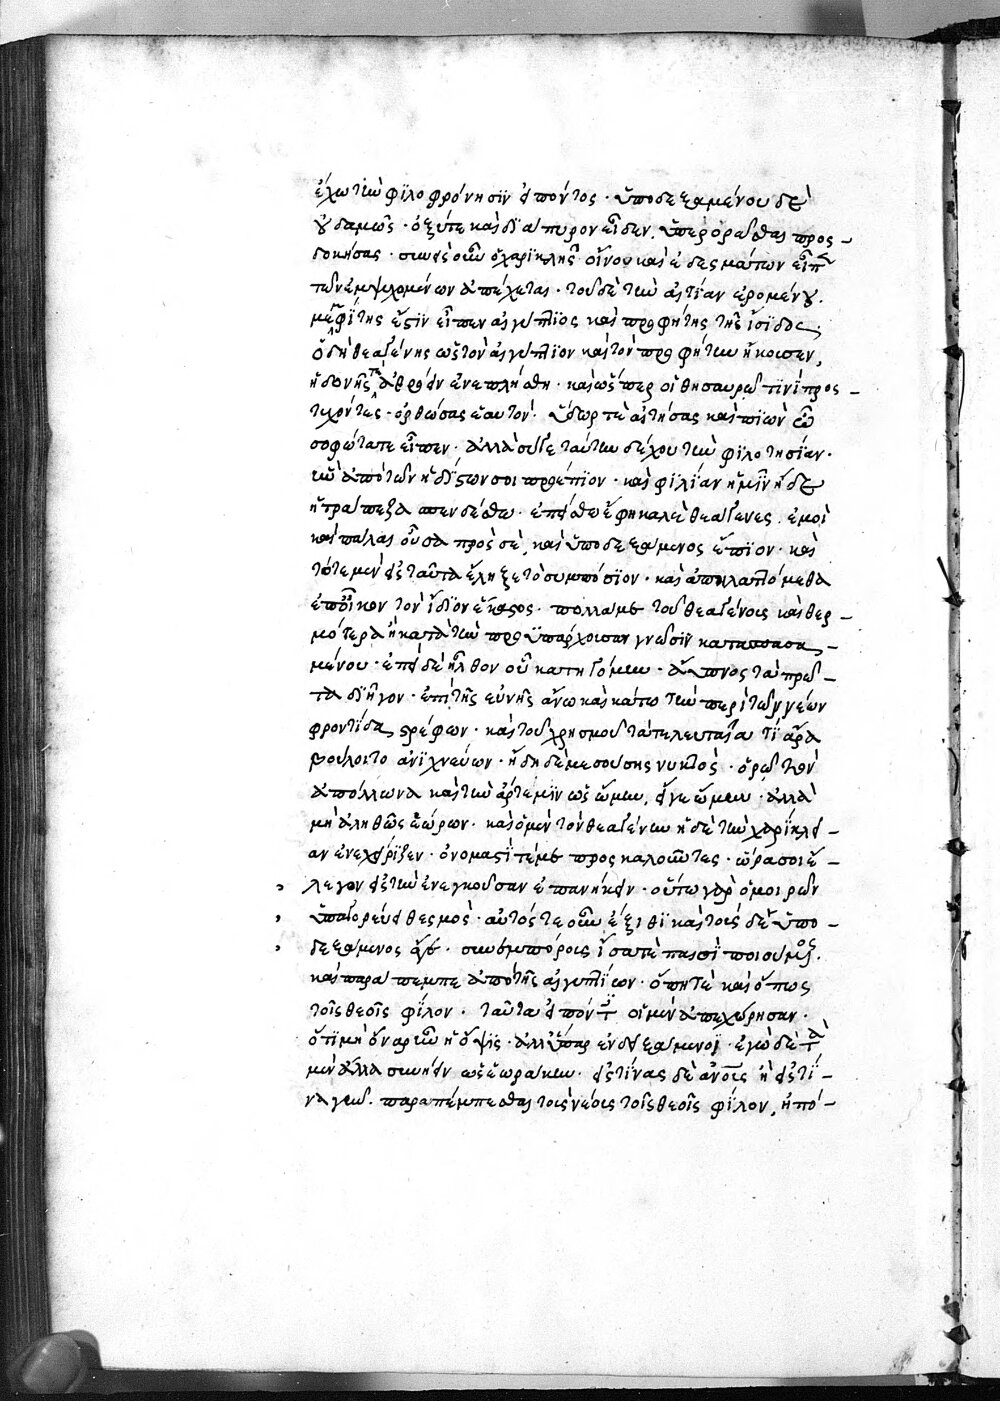 ἔχω τὴν φιλοφρόνησιν εἰπόντος · ὑποδεξαμένου δὲ
οὐδαμῶς · ὀξύ τε καὶ διάπυρον εἶδεν, ὑπερορᾶσθαι προς-
δοκήσας · συνεὶς οὖν ὁ χαρικλῆς οἴνου καὶ ἐδεσμάτων εἶπεν
τῶν ἐμψυχομένων ἀπέχεται · τοῦ δὲ τὴν αἰτίαν ἐρομένου ·
μεμφίτης ἐστὶν εἶπεν αἰγύπτιος καὶ προφήτης τῆς ἴσιδος ·
ὁ δὴ θεαγένης ὡς τὸν αἰγύπτιον καὶ τὸν προφήτην ἤκουσεν,
ἡδονῆς τε ἀθρόον ἐνεπλήσθη · καὶ ὥσπερ οἱ θησαυρῶ τινὶ προς-
τυχόντες · ὀρθώσας ἑαυτὸν · ὕδωρ τὲ αἰτήσας καὶ πιὼν ὦ
σοφώτατε εἶπεν · ἀλλὰ σύ γε ταύτην δέχου τὴν φιλοτησίαν ·
ἣν ἀπὸ τῶν ἡδίστων σοι προὔπιον · καὶ φιλίαν ἡμῖν ἥδε
ἡ τράπεζα σπενδέσθω · ἐσπείσθω ἔφην καλὲ θεάγενες · ἐμοὶ
καὶ πάλαι οὖσα πρὸς σὲ, καὶ ὑποδεξάμενος ἔπιον · καὶ
τότε μὲν εἰς ταῦτα ἔληξε τὸ συμπόσιον · καὶ ἀπηλλαττόμεθα
ἐπ' οἶκον τὸν ἴδιον ἕκαστος · πολλά με τοῦ θεαγένους καὶ θερ-
μότερα ἢ κατὰ τὴν προϋπάρχουσαν γνῶσιν κατασπασα-
μένου · ἐπεὶ δὲ ἦλθον οὗ κατηγόμην · ἄϋπνος τὰ πρῶ-
τα διῆγον · ἐπὶ τῆς εὐνῆς ἄνω καὶ κάτω τὴν περὶ τῶν νέων
φροντίδα στρέφων · καὶ τοῦ χρησμοῦ τὰ τελευταῖα τί ἄρα
βούλοιτο ἀνιχνεύων · ἤδη δὲ μεσούσης νυκτὸς · ὁρῶ τὸν
ἀπόλλωνα καὶ τὴν ἄρτεμιν ὡς ᾤμην, εἴγε ᾤμην · ἀλλὰ
μὴ ἀληθῶς ἑώρων · καὶ ὁ μὲν τὸν θεαγένην ἡ δὲ τὴν χαρίκλει-
αν ἐνεχείριζεν · ὀνομαστί τέ με προσκαλοῦντες · ὥρα σοι ἔ-
λεγον εἰς τὴν ἐνεγκοῦσαν ἐπανήκειν · οὕτω γὰρ ὁ μοιρῶν
ὑπαγορεύει θεσμὸς · αὐτός τε οὖν ἔξιθι καὶ τούσδε ὑπο-
δεξάμενος ἄγε · συνεμπόρους ἴσα τὲ παισὶ ποιούμενος ·
καὶ παράπεμπε ἀπὸ τῆς αἰγυπτίων · ὅπη τὲ καὶ ὅπως
τοῖς θεοῖς φίλον · ταῦτα εἰπόντες οἱ μὲν ἀπεχώρησαν ·
ὅτι μὴ ὄναρ ἦν ἡ ὄψις · ἀλλ' ὕπαρ ἐνδειξάμενοι · ἐγὼ δὲ τὰ
μὲν ἄλλα συνήειν ὡς ἑωράκην · εἰς τίνας δὲ ἀνοὺς ἢ εἰς τί-
να γῆν · παραπέμπεσθαι τοὺς νέους τοῖς θεοῖς φίλον, ἠπό-